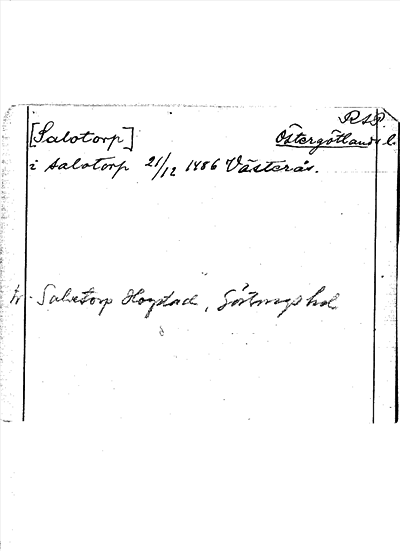 [Salotorp]
Östergötlands l.
i salotorp 21/12 1486 Västerås.
Saletorp Hogstad, Göstrings hd